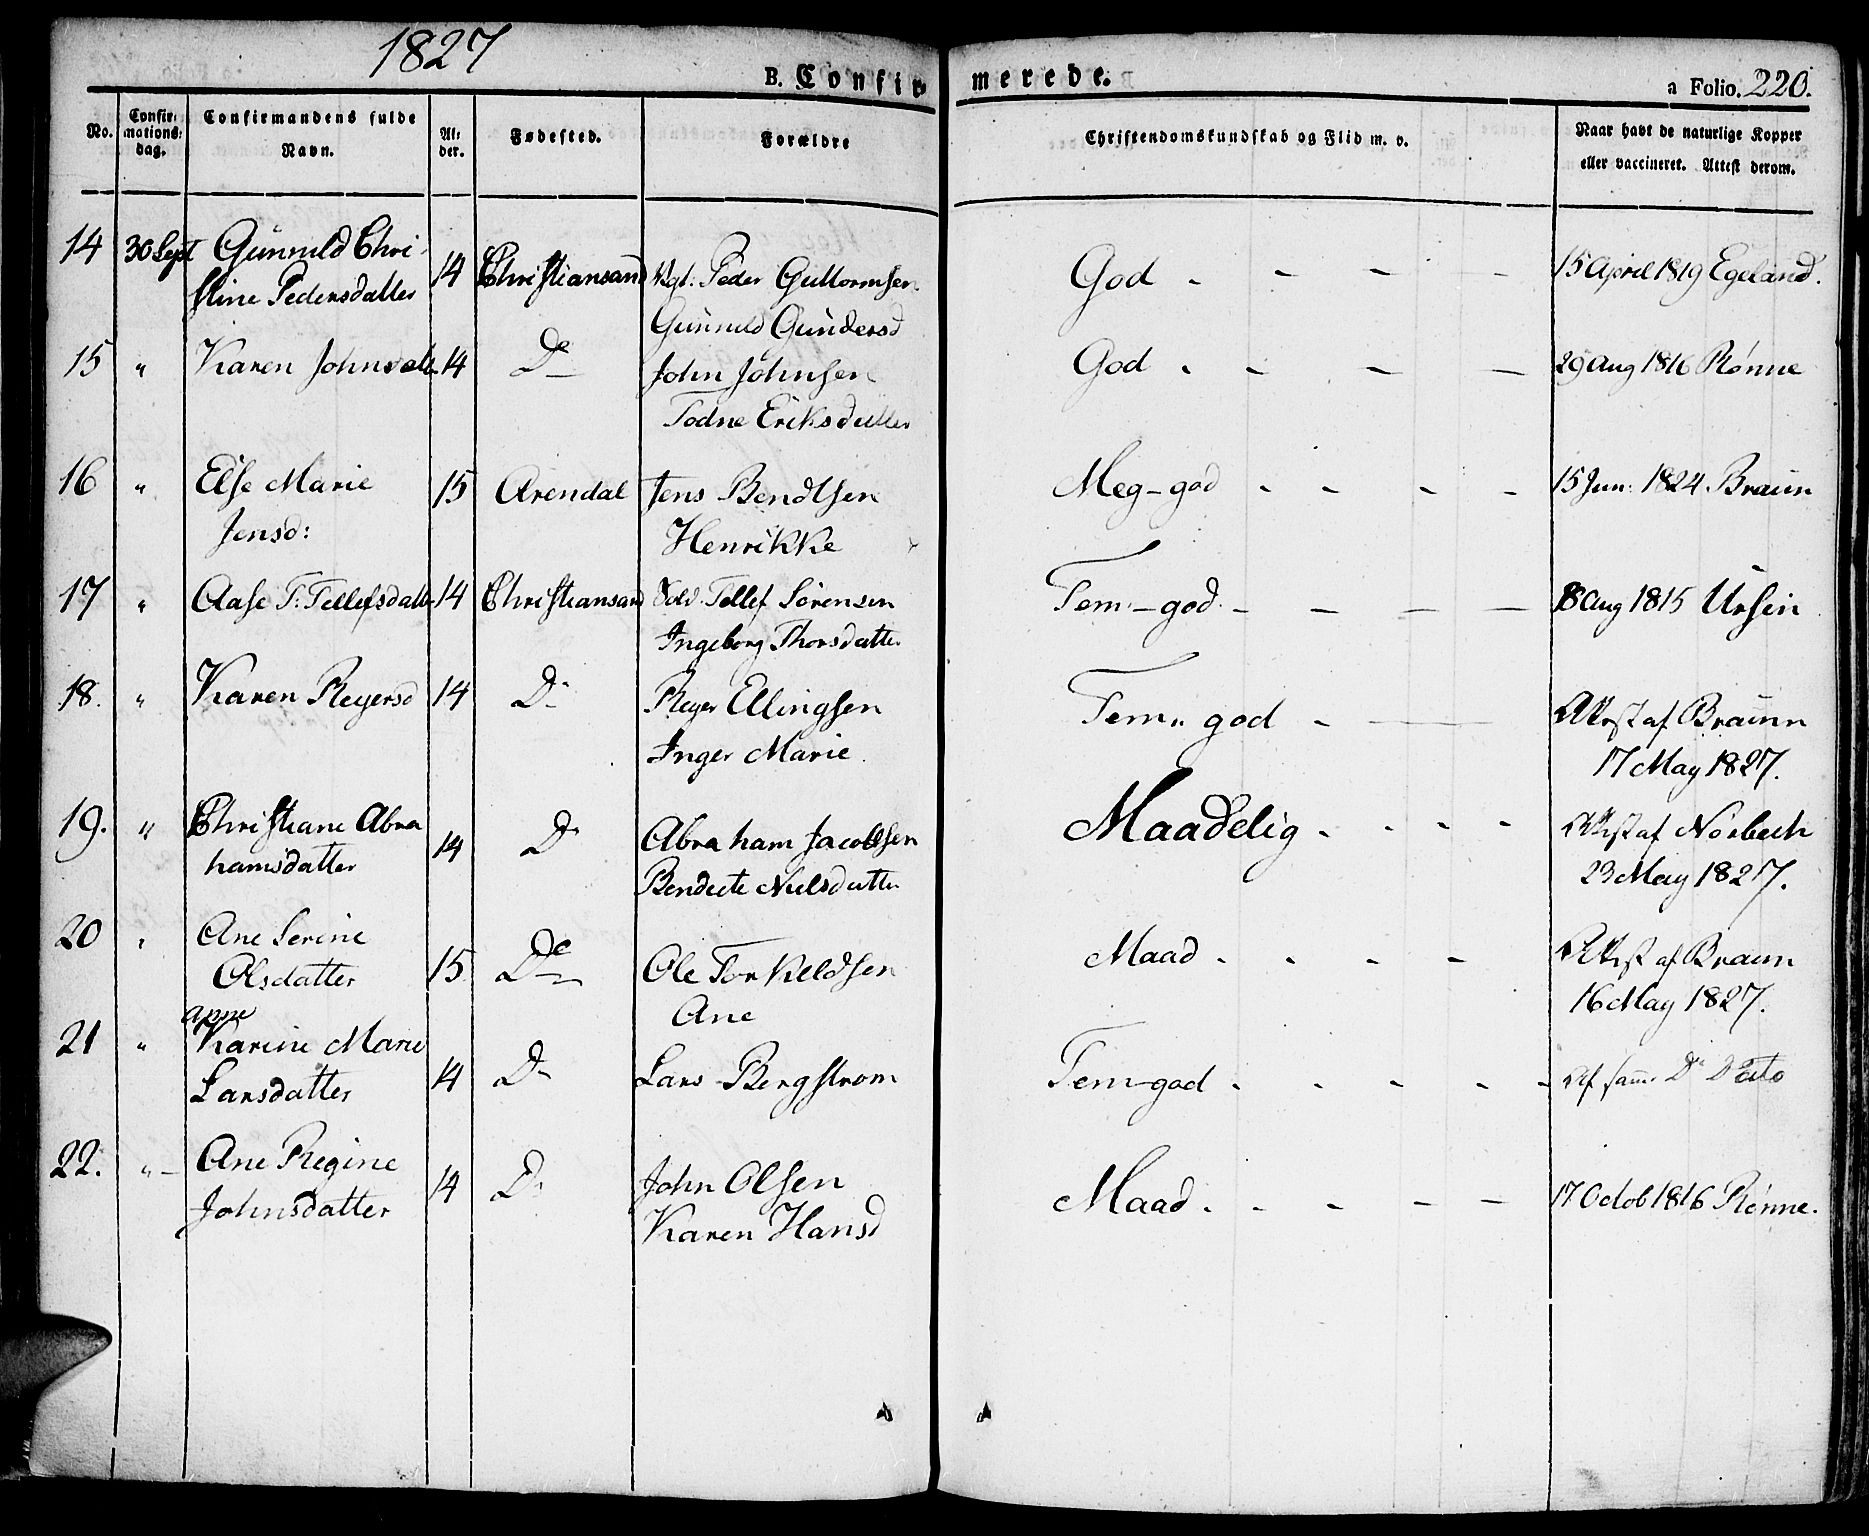 1827
B. Confirmerede.
a Folio. 220.
No.
Confir-
mations-
dag.
Confirmandens fulde
Navn.
Al-
der.
Fødested.
Forældre
Christendomskundskab og Flid m. v.
Naar havt de naturlige Kopper
eller vaccineret. Attest derom.
14 30 Sept Gunnild Chri-
stine Pedersdatter 14 Christiansand Vgt. Peder Guttormsen God - - - - 15 April 1819 Egeland.
Gunnild Gundersd
15 " Karen Johnsdatt 14 Do John Johnsen God - - - - 29 Aug 1816 Rønne
Todne Eriksdatter
16 " Else Marie 15 Arendal Jens Bendtsen Meg-god - - - - 15 Jun: 1824. Braun
Jensd: Henrikke
17 " Aase T: Tellefsdatt 14 Christiansand Sold. Tellef Sørensen Tem-god - - - - 8 Aug 1815 Ursin
Ingeborg Thorsdatter
18. " Karen Reyersd 14 Do Reyer Ellingsen Tem: god - - Attest af Braun
Inger Marie 17 May 1827.
19. " Christiane Abra
hamsdatter 14 Do Abraham Jacobsen Maadelig - - - - Attest af Norbech
Bendecte Nielsdatter 23 May 1827.
20 " Ane Serine
Olsdatter 15 Do Ole Torkeldsen Maad - - - - Attest af Braun
Ane 16 May 1827.
anne
21 " Karine Marie
Larsdatter 14 Do Lars Bergstrom Tem-god - - - - - Af samme Do Dato
22. " Ane Regine
Johnsdatter 14 Do John Olsen Maad - - - - - 17 Octob 1816 Rønne.
Karen Hansd